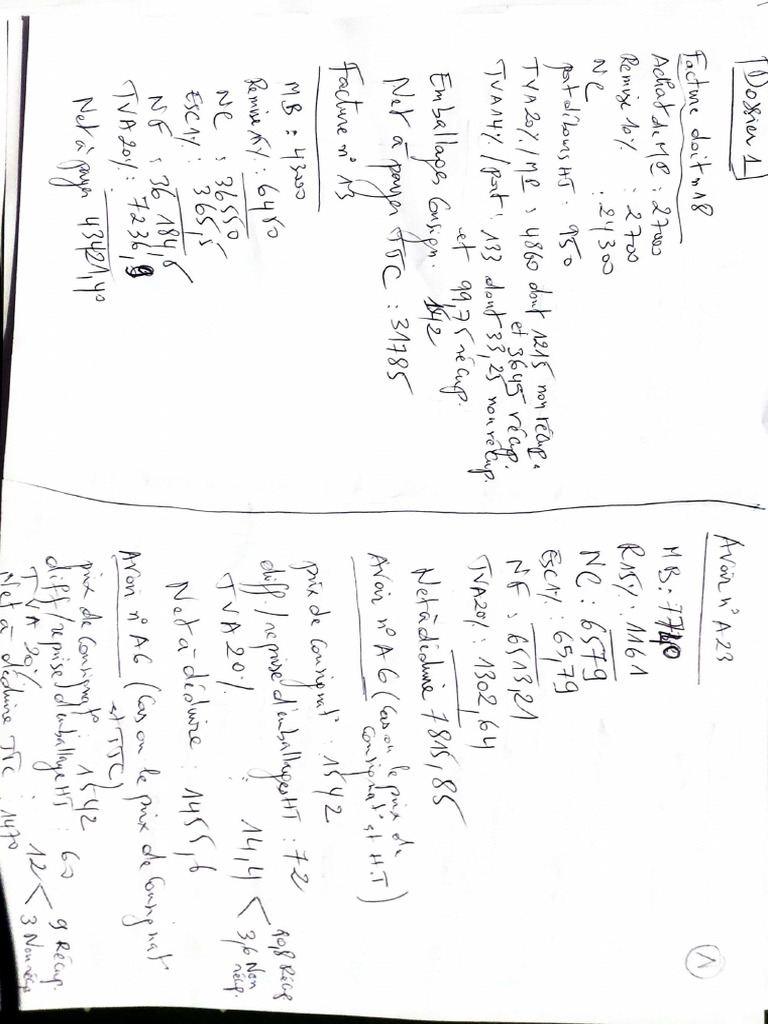 Dossier 1
Facture doit n° 18
Achat de MP : 27000
Remise 10% : 2700
NC : 24300
port débours HT : 950
TVA 20% / MP : 4860 dont 1215 non récup.
et 3645 récup.
TVA 14% / port : 133 dont 33,25 non récup.
et 99,75 récup.
Emballages Consign. 1542
Net à payer TTC : 31785
Facture n° 13
MB : 43000
Remise 15% : 6450
NC : 36550
ESC 1% : 365,5
NF : 36184,5
TVA 20% : 7236,9
Net à payer 43421,40
1
Avoir n° A23
MB : 7740
R 15% : 1161
NC : 6579
ESC 1% : 65,79
NF : 6513,21
TVA 20% : 1302,64
Net à déduire 7815,85
Avoir n° A6 (Cas ou le prix de
Consignat° est H.T)
prix de Consignat° : 1542
diff. / reprise d'emballages HT : 72
TVA 20% : 14,4 < 10,8 Récup
3,6 Non récup.
Net à déduire : 1455,6
Avoir n° A6 (Cas ou le prix de Consignat°
est TTC)
prix de Consignat° : 1542
diff / reprise d'emballage HT : 60
TVA 20% 12 < 9 Récup.
3 Non récup
Net à déduire TTC : 1470